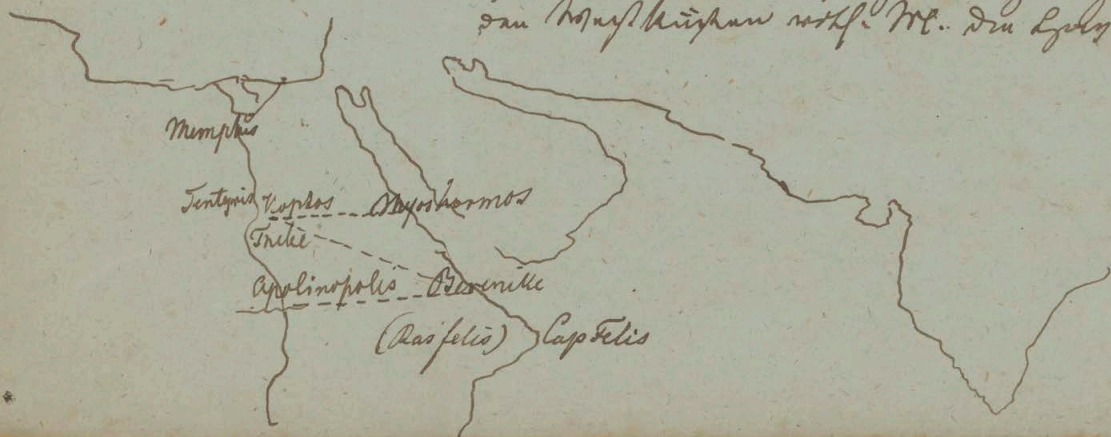 den Westküsten roth. M. den
Memphis
Tentyris Koptos Myoshormos
Apolinopolis Berenike
(Ras felis) Cap Felis